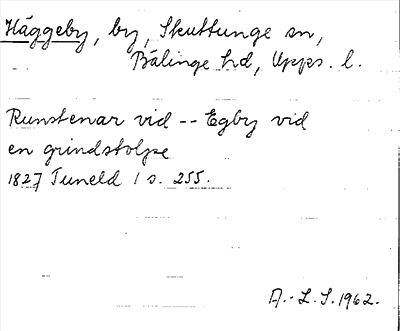 Häggeby, by, Skuttunge sn,
Bälinge hd, Upps. l.
Runstenar vid -- Egby vid
en grindstolpe
1827 Tuneld 1 s. 255.
A.-L.S. 1962.